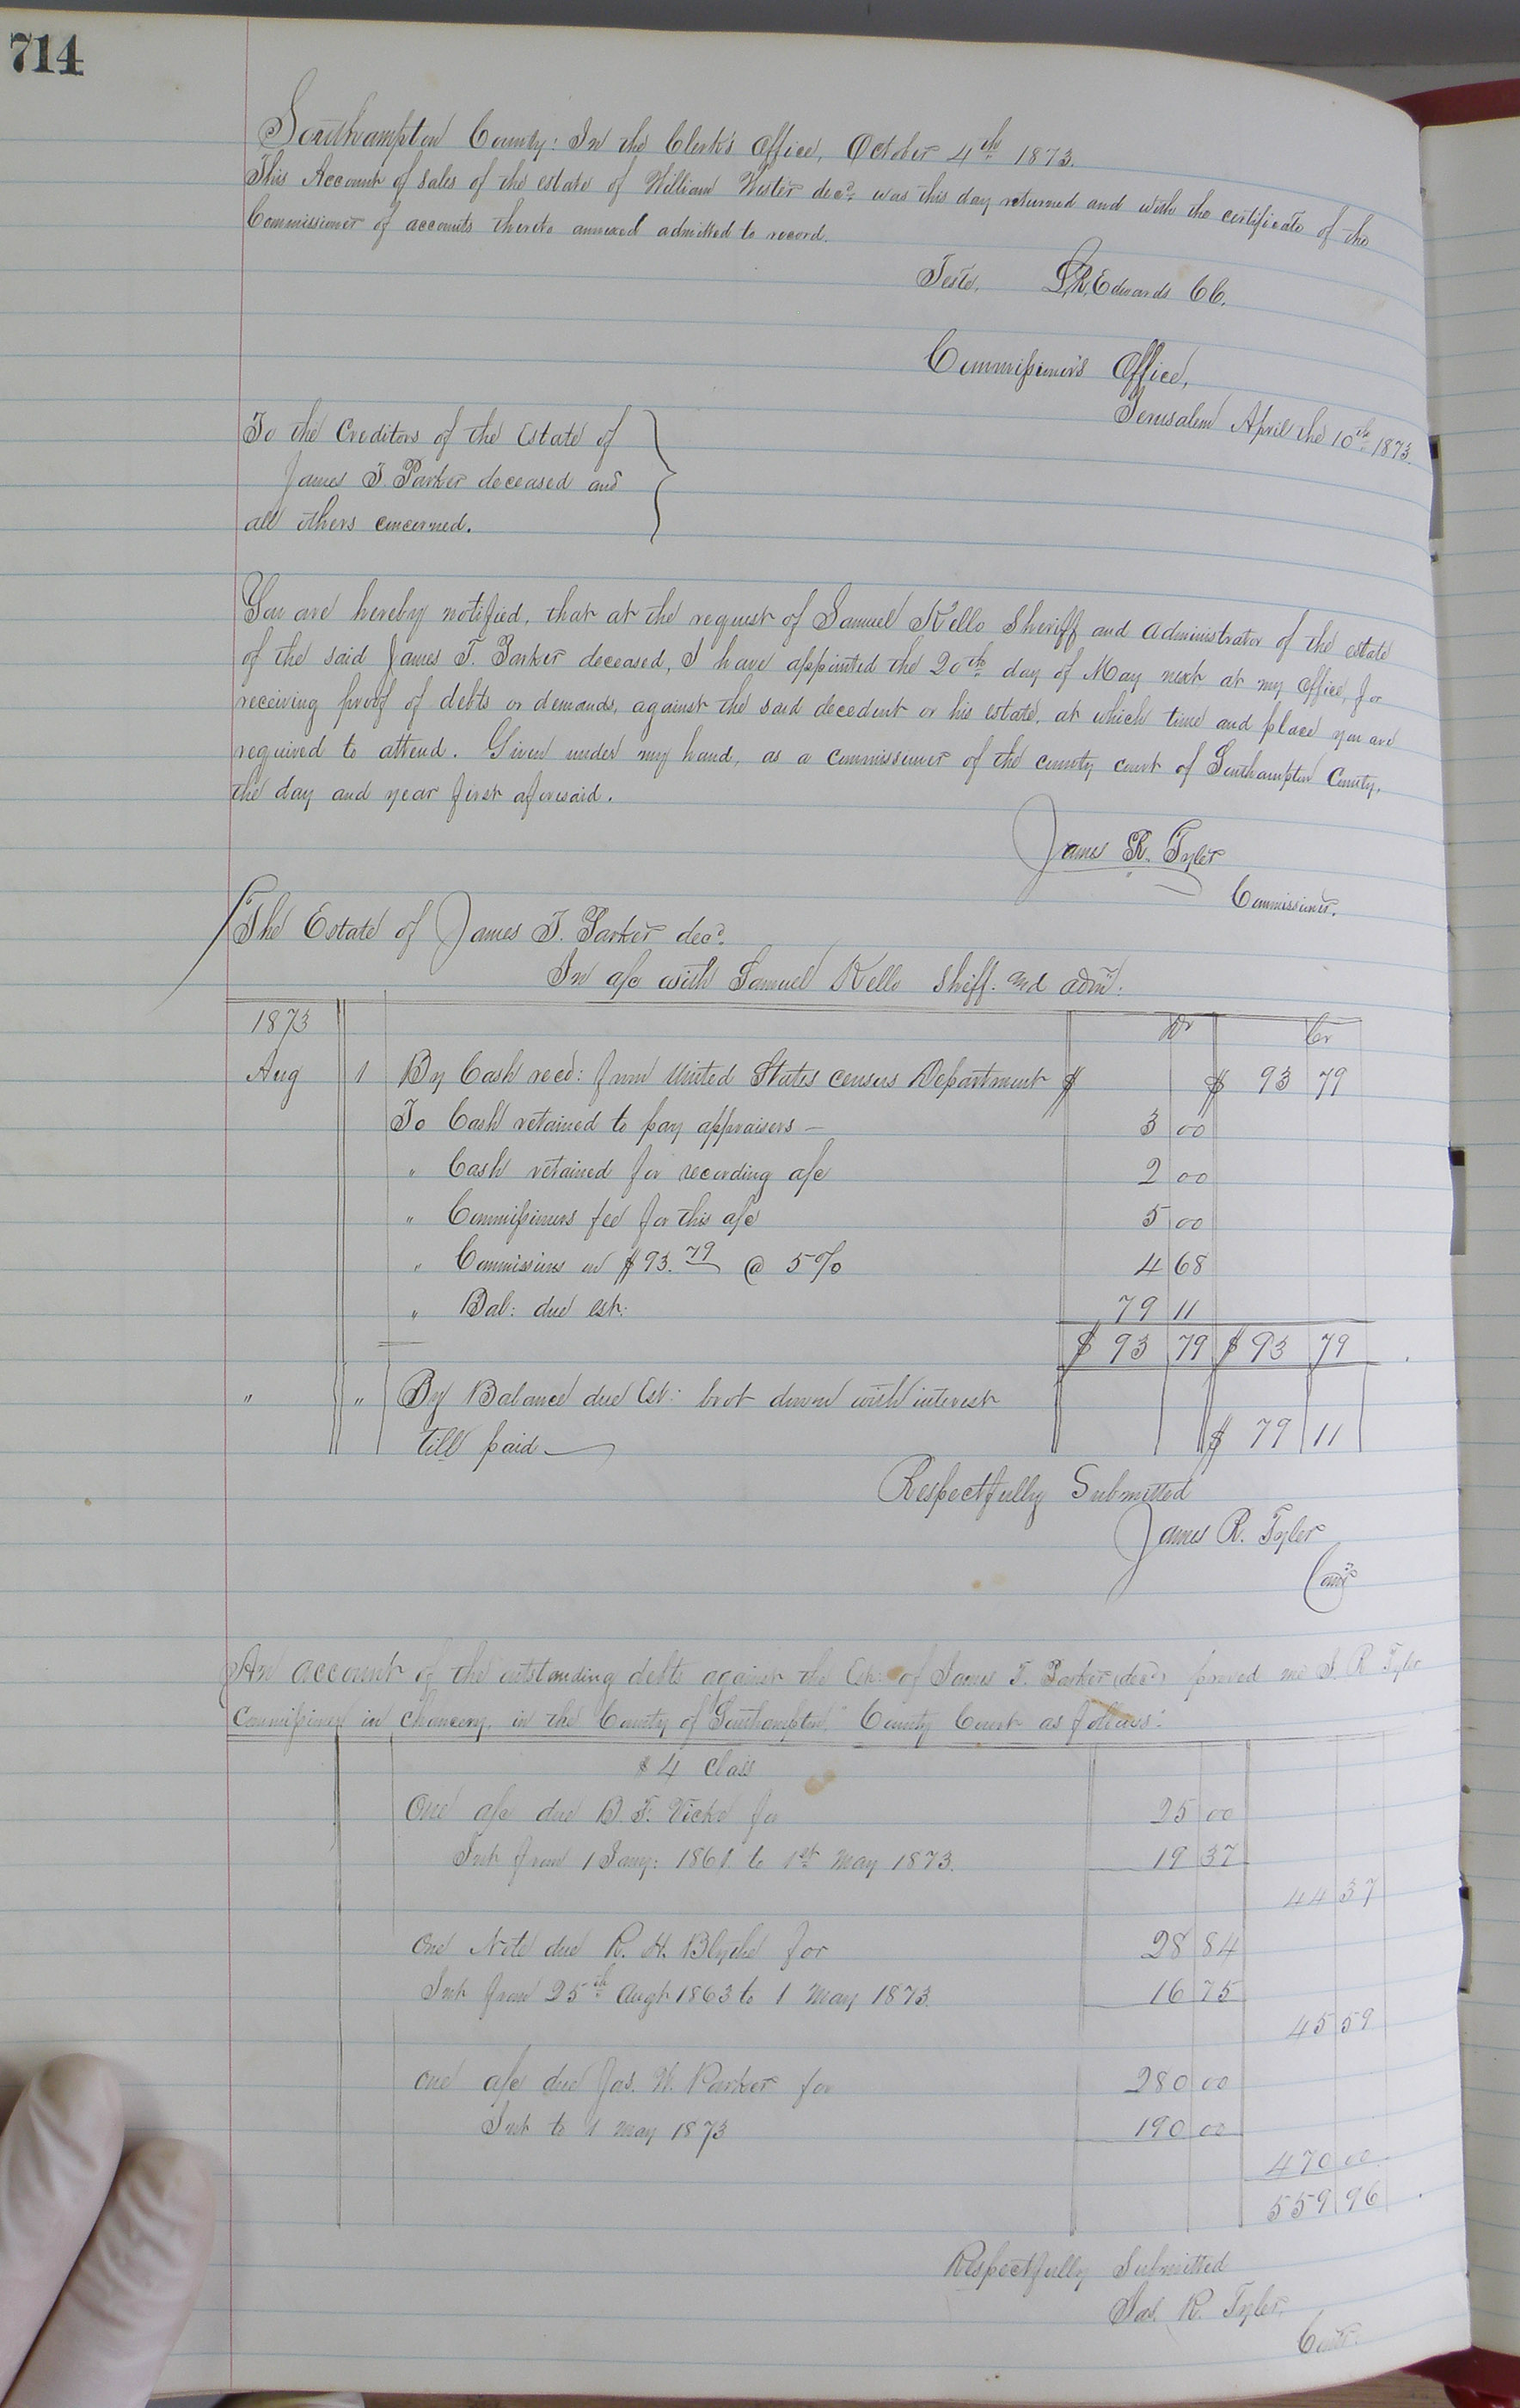 714
Southampton County: In the Clerk's Office, October 4th 1873.
This Account of sales of the estate of William Wester decd. was this day returned and with the certificate of the
Commissioner of accounts thereto annexed admitted to record.
Teste, L.R. Edwards CC.
Commissioner's Office,
Jerusalem April the 10th 1873.
To the Creditors of the Estate of
James T. Parker deceased and
all others concerned.
You are hereby notified, that at the request of Samuel Kello Sheriff and administrator of the estate
of the said James T. Parker deceased, I have appointed the 20th day of May next, at my office, for
receiving proof of debts or demands, against the said decedent or his estate, at which time and place you are
required to attend. Given under my hand, as a commissioner of the county court of Southampton County,
the day and year first aforesaid.
James R. Tyler
Commissioner.
The Estate of James T. Parker decd.
In a/c with Samuel Kello Sheff. and admr.
1873 Dr Cr
Aug 1 By Cash recd: from United States census Department $ $ 93 79
To Cash retained to pay appraisers — 3 00
" Cash retained for recording a/c 2 00
" Commissioners fee for this a/c 5 00
" Commissions on $93.79 @ 5% 4 68
" Bal: due est: 79 11
$ 93 79 $ 93 79
" " By Balance due Est: brot down with interest
till paid $ 79 11
Respectfully Submitted
James R. Tyler
Comr
An account of the outstanding debts against the Est: of James T. Parker decd. proved me J. R. Tyler
Commissioner in chancery, in the County of Southampton, County Court as follows:
$ 4 class
One a/c due B. F. Vick for 25 00
Int from 1 Jany: 1861. to 1st May 1873. 19 37
44 37
One Note due R. H. Blythe for 28 84
Int from 25th Augt 1863 to 1 May 1873. 16 75
45 59
One a/c due Jas. W. Parker for 280 00
Int to 1 May 1873 190 00
470 00
559 96
Respectfully Submitted
Jas. R. Tyler,
Comr.